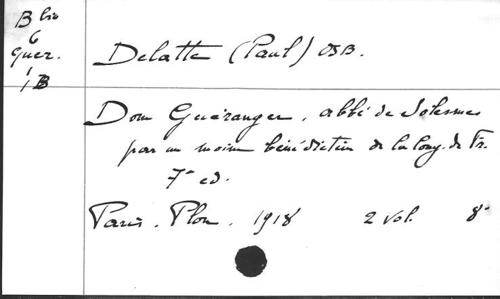 B lio
6
Guer.
1
1B
Delatte (Paul) OSB.
Dom Guéranger, abbé de Solesmes
par un moine bénédictin de la Cong. de Fr.
7e ed.
Paris. Plon. 1918 2 vol. 8°